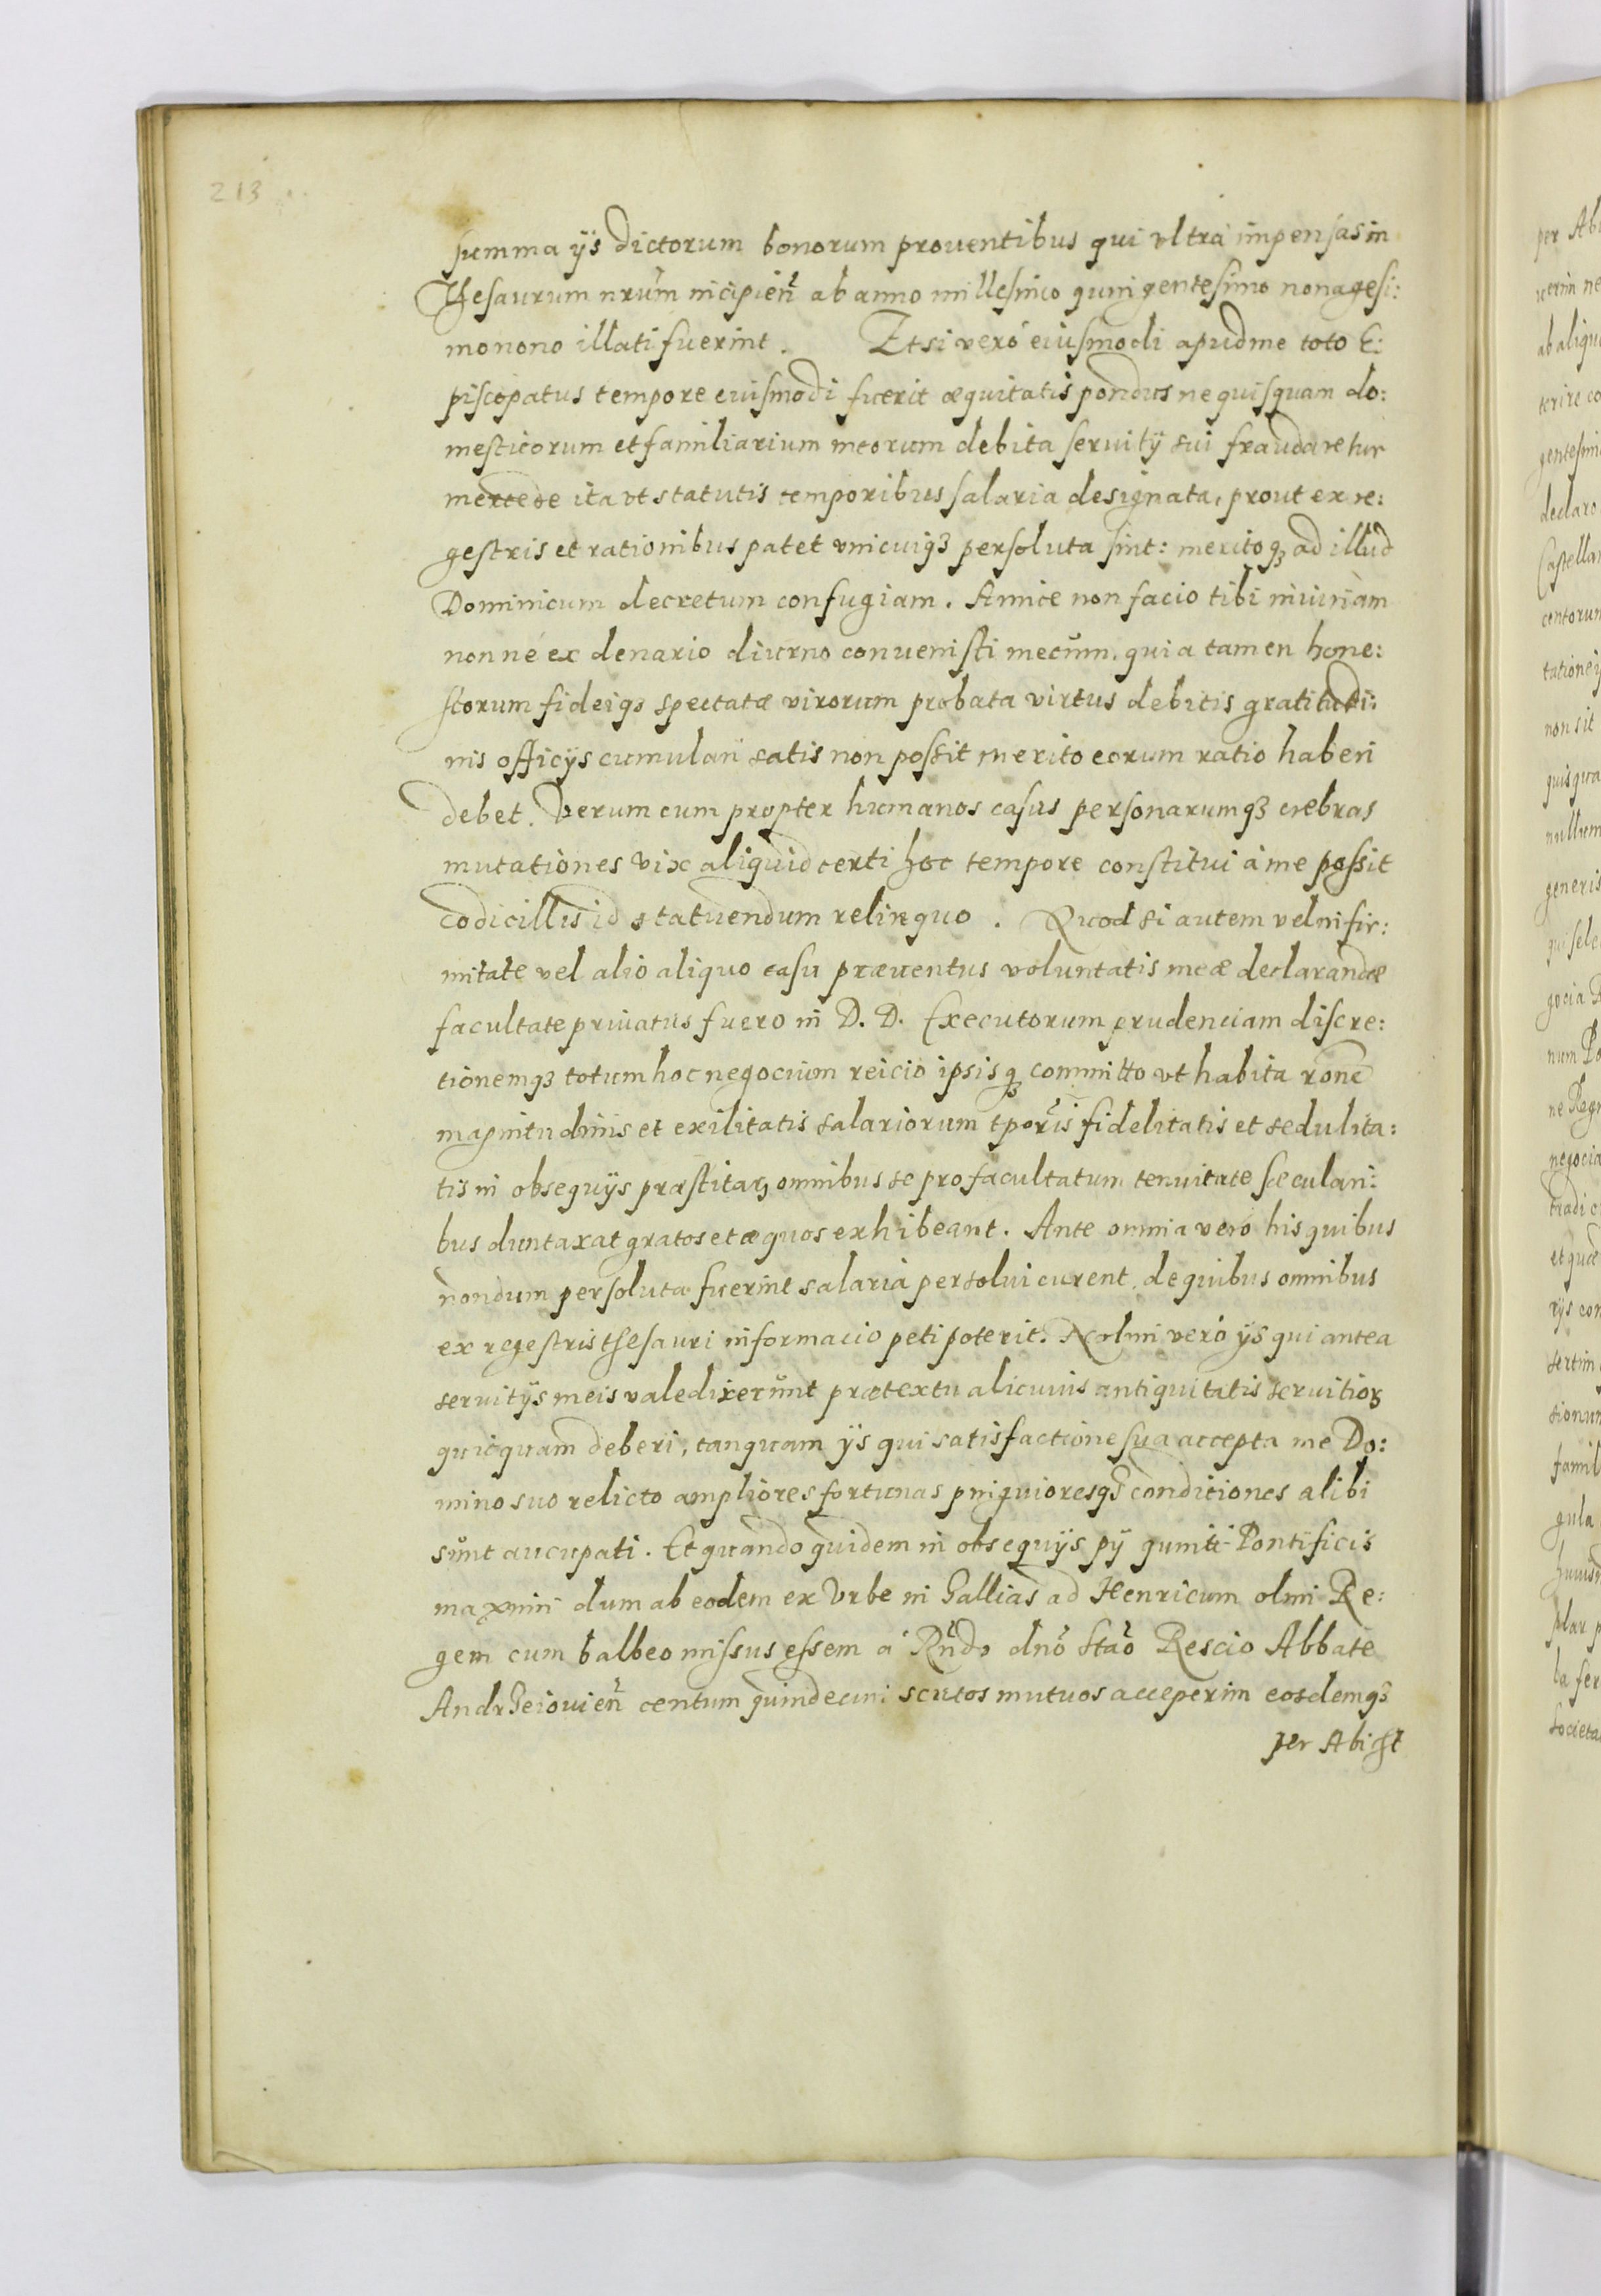 213
summa ijs dictorum bonorum prouentibus qui vltrà impensas in
Thesaurum nrũm incipieñ ab anno millesimo quingentesimo nonagesi:
mo nono illati fuerint. Etsi verò eiusmodi apud me toto E:
piscopatus tempore eiusmodi fuerit æquitatis pondus ne quisquam do:
mesticorum et familiarium meorum debita seruitÿ sui fraudaretur
mercede ita vt statutis temporibus salaria designata, prout ex re:
gestris et rationibus patet vnicuiqꝫ persoluta sint: meritoqꝫ ad illud
Dominicum decretum confugiam. Amice non facio tibi iniuriam
nonnè ex denario diurno conuenisti mecum. quia tamen hone:
storum fideiqꝫ spectatæ virorum probata virtus debitis gratitudi:
nis officÿs cumulari satis non possit merito eorum ratio haberi
debet. Verum cum propter humanos casus personarumqꝫ crebras
mutationes vix aliquid certi hoc tempore constitui à me possit
codicillis id statuendum relinquo. Quod si autem vel infir:
mitate vel alio aliquo casu præuentus voluntatis meæ declarandæ
facultate priuatus fuero in D. D. Executorum prudenciam discre:
tionemqꝫ totum hoc negocium reicio ipsisqꝫ committo vt habita ronẽ
magnitudinis et exilitatis salariorum tporis̃ fidelitatis et sedulita:
tis in obsequÿs præstitaꝝ omnibus se pro facultatum tenuitate sæculari:
bus duntaxat gratos et æquos exhibeant. Ante omnia verò his quibus
nondum persoluta fuerint salaria persolui curent. de quibus omnibus
ex regestris thesauri informacio peti poterit. Nolim verò ÿs qui antea
seruitÿs meis valedixerunt prætextu alicuius antiquitatis seruitioꝝ
quicquam deberi, tanquam ÿs qui satisfactione sua accepta me Do:
mino suo relicto ampliores fortunas pinquioresqꝫ conditiones alibi
sunt aucupati. Et quando quidem in obsequÿs pÿ quinti Pontificis
maximi dum ab eodem ex Vrbe in Gallias ad Henricum olim Re:
gem cum balbeo missus essem à Rñdo dnõ Stão Rescio Abbate
Andrzeiouieñ centum quindecim scutos mutuos acceperim eosdemqꝫ
per Abi